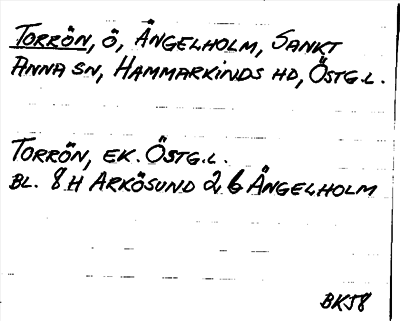 TORRÖN, Ö, ÄNGELHOLM, SANKT
ANNA SN, HAMMARKINDS HD, ÖSTG.L.
TORRÖN, EK. ÖSTG.L.
BL. 8 H ARKÖSUND 2 6 ÄNGELHOLM
BK58